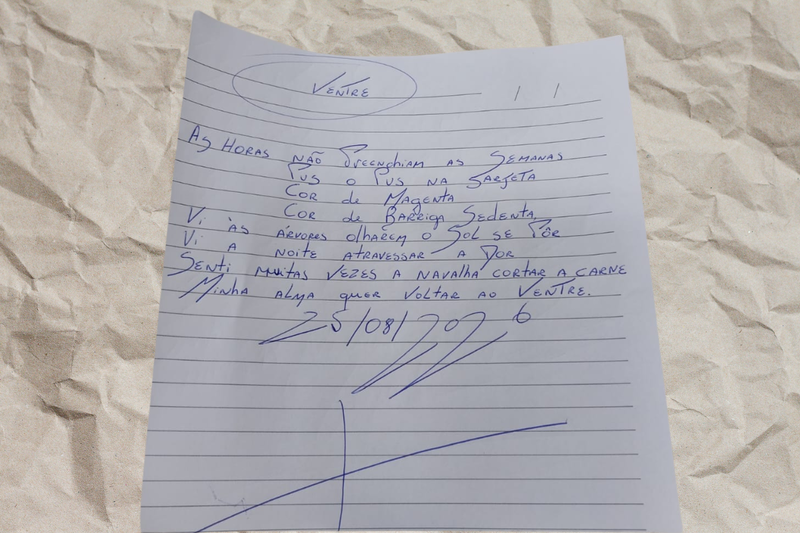 VENTRE
/ /
AS HORAS NÃO PREENCHIAM AS SEMANAS
PUS O PUS NA SARJETA
COR de MAGENTA
COR de BARRIGA SEDENTA,
Vi ÀS ÁRVORES OLHAREM O SOL SE PÔR
Vi A NOITE ATRAVESSAR A DOR
SENTi MUITAS VEZES A NAVALHA CORTAR A CARNE
MINHA ALMA QUER VOLTAR AO VENTRE.
25/08/